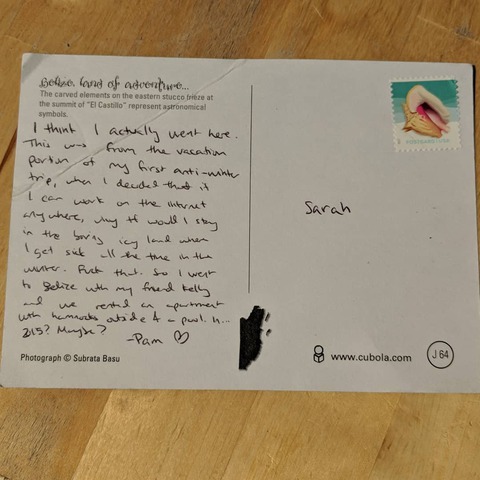 Belize, land of adventure...
The carved elements on the eastern stucco frieze at
the summit of "El Castillo" represent astronomical
symbols.
I think I actually went here.
This was from the vacation
portion of my first anti-winter
trip, when I decided that if
I can work on the internet
anywhere, why tf would I stay
in the boring icy land when
I get sick all the time in the
winter. Fuck that. So I went
to Belize with my friend Kelly
and we rented an apartment
with hammocks outside & a pool. In...
2015? Maybe?
-Pam ♡
Photograph © Subrata Basu
Sarah
POSTCARD
www.cubola.com
J 64